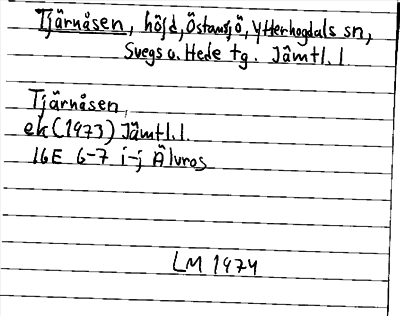 Tjärnåsen, höjd, Östansjö, Ytterhogdals sn,
Svegs o. Hede tg. Jämtl. l
Tjärnåsen,
ek (1973) Jämtl. l.
16E 6-7 i-j Älvros
LM 1974